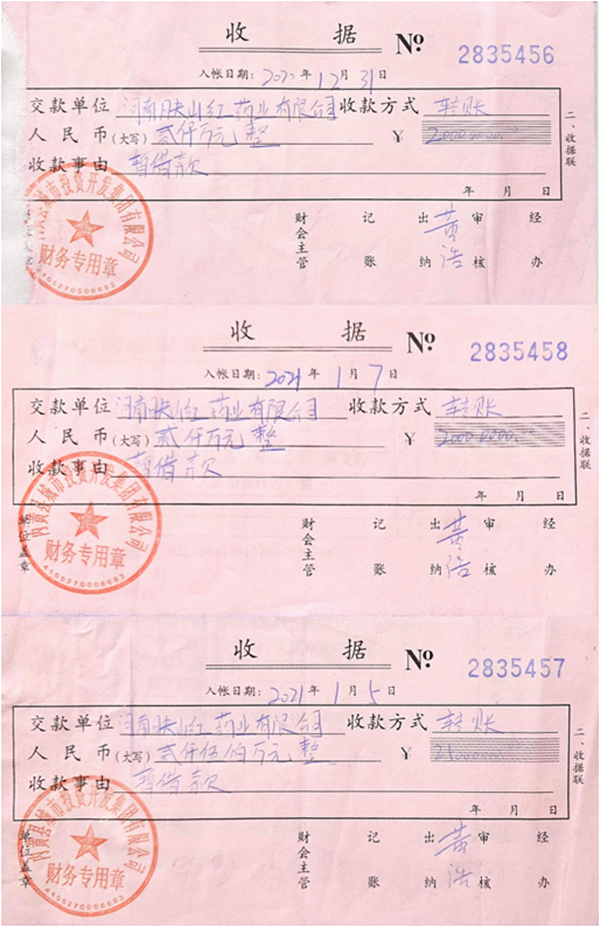 收 据 № 2835456
入帐日期：2020 年 12 月 31 日
交款单位 河南映山红药业有限公司 收款方式 转账
人民币（大写） 贰仟万元整 ￥ 20000000.00
收款事由 暂借款
年 月 日
二、收据联
财会主管 记账 出纳 黄浩 审核 经办
县城市投资开发集团有限公司
财务专用章
4105270006683
收 据 № 2835458
入帐日期：2021 年 1 月 7 日
交款单位 河南映山红药业有限公司 收款方式 转账
人民币（大写） 贰仟万元整 ￥ 20000000.00
收款事由 暂借款
年 月 日
二、收据联
单位盖章 财会主管 记账 出纳 黄浩 审核 经办
内黄县城市投资开发集团有限公司
财务专用章
4105270006683
收 据 № 2835457
入帐日期：2021 年 1 月 5 日
交款单位 河南映山红药业有限公司 收款方式 转账
人民币（大写） 贰仟伍佰万元整 ￥
收款事由 暂借款
年 月 日
二、收据联
单位盖章 财会主管 记账 出纳 黄浩 审核 经办
内黄县城市投资开发集团有限公司
财务专用章
4105270006683